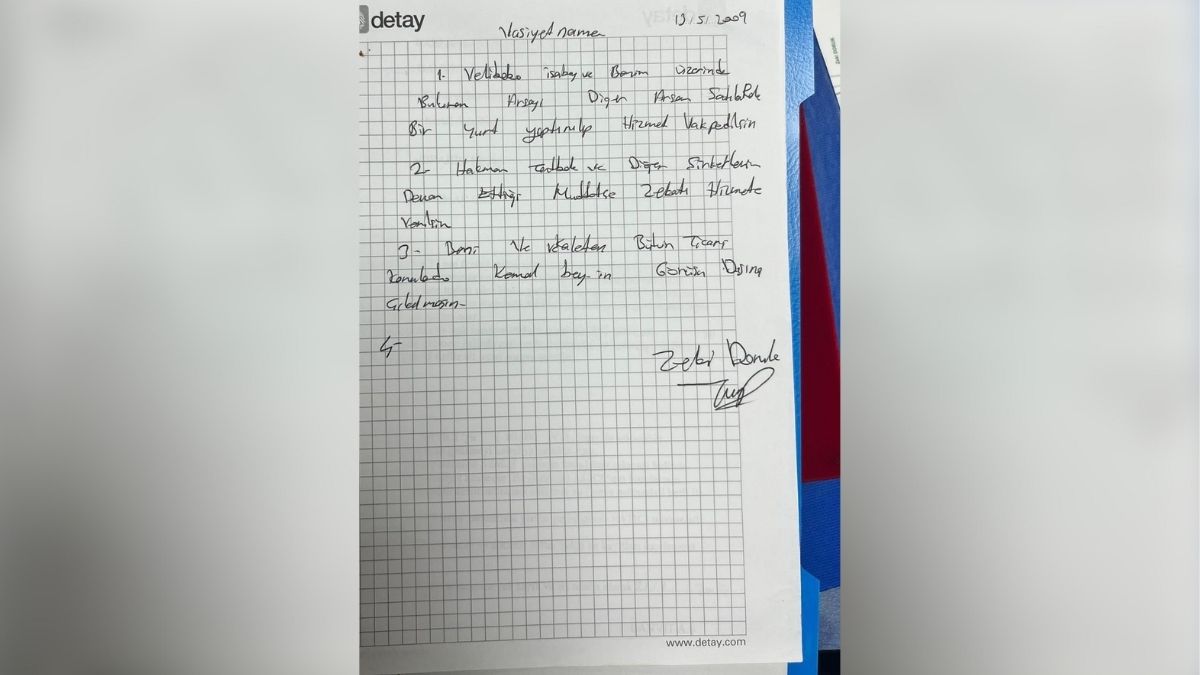 detay
Vasiyetname 13/5/2009
1. isabey ve Benim üzerinde
Bulunan Arsayı Diğer Arsam Satılıp
Bir Yurt yaptırılıp Hizmet Vakpedilsin
2- Hakman ve Diğer Şirketlerin
Devam Ettiği Muddetçe Zekatı Hizmete
Verilsin
3- Beni Ve vekaleten Bütün Ticari
Konularda Kemal bey in Görüşü Dışına
Çıkılmasın-
4-
Zeki
www.detay.com